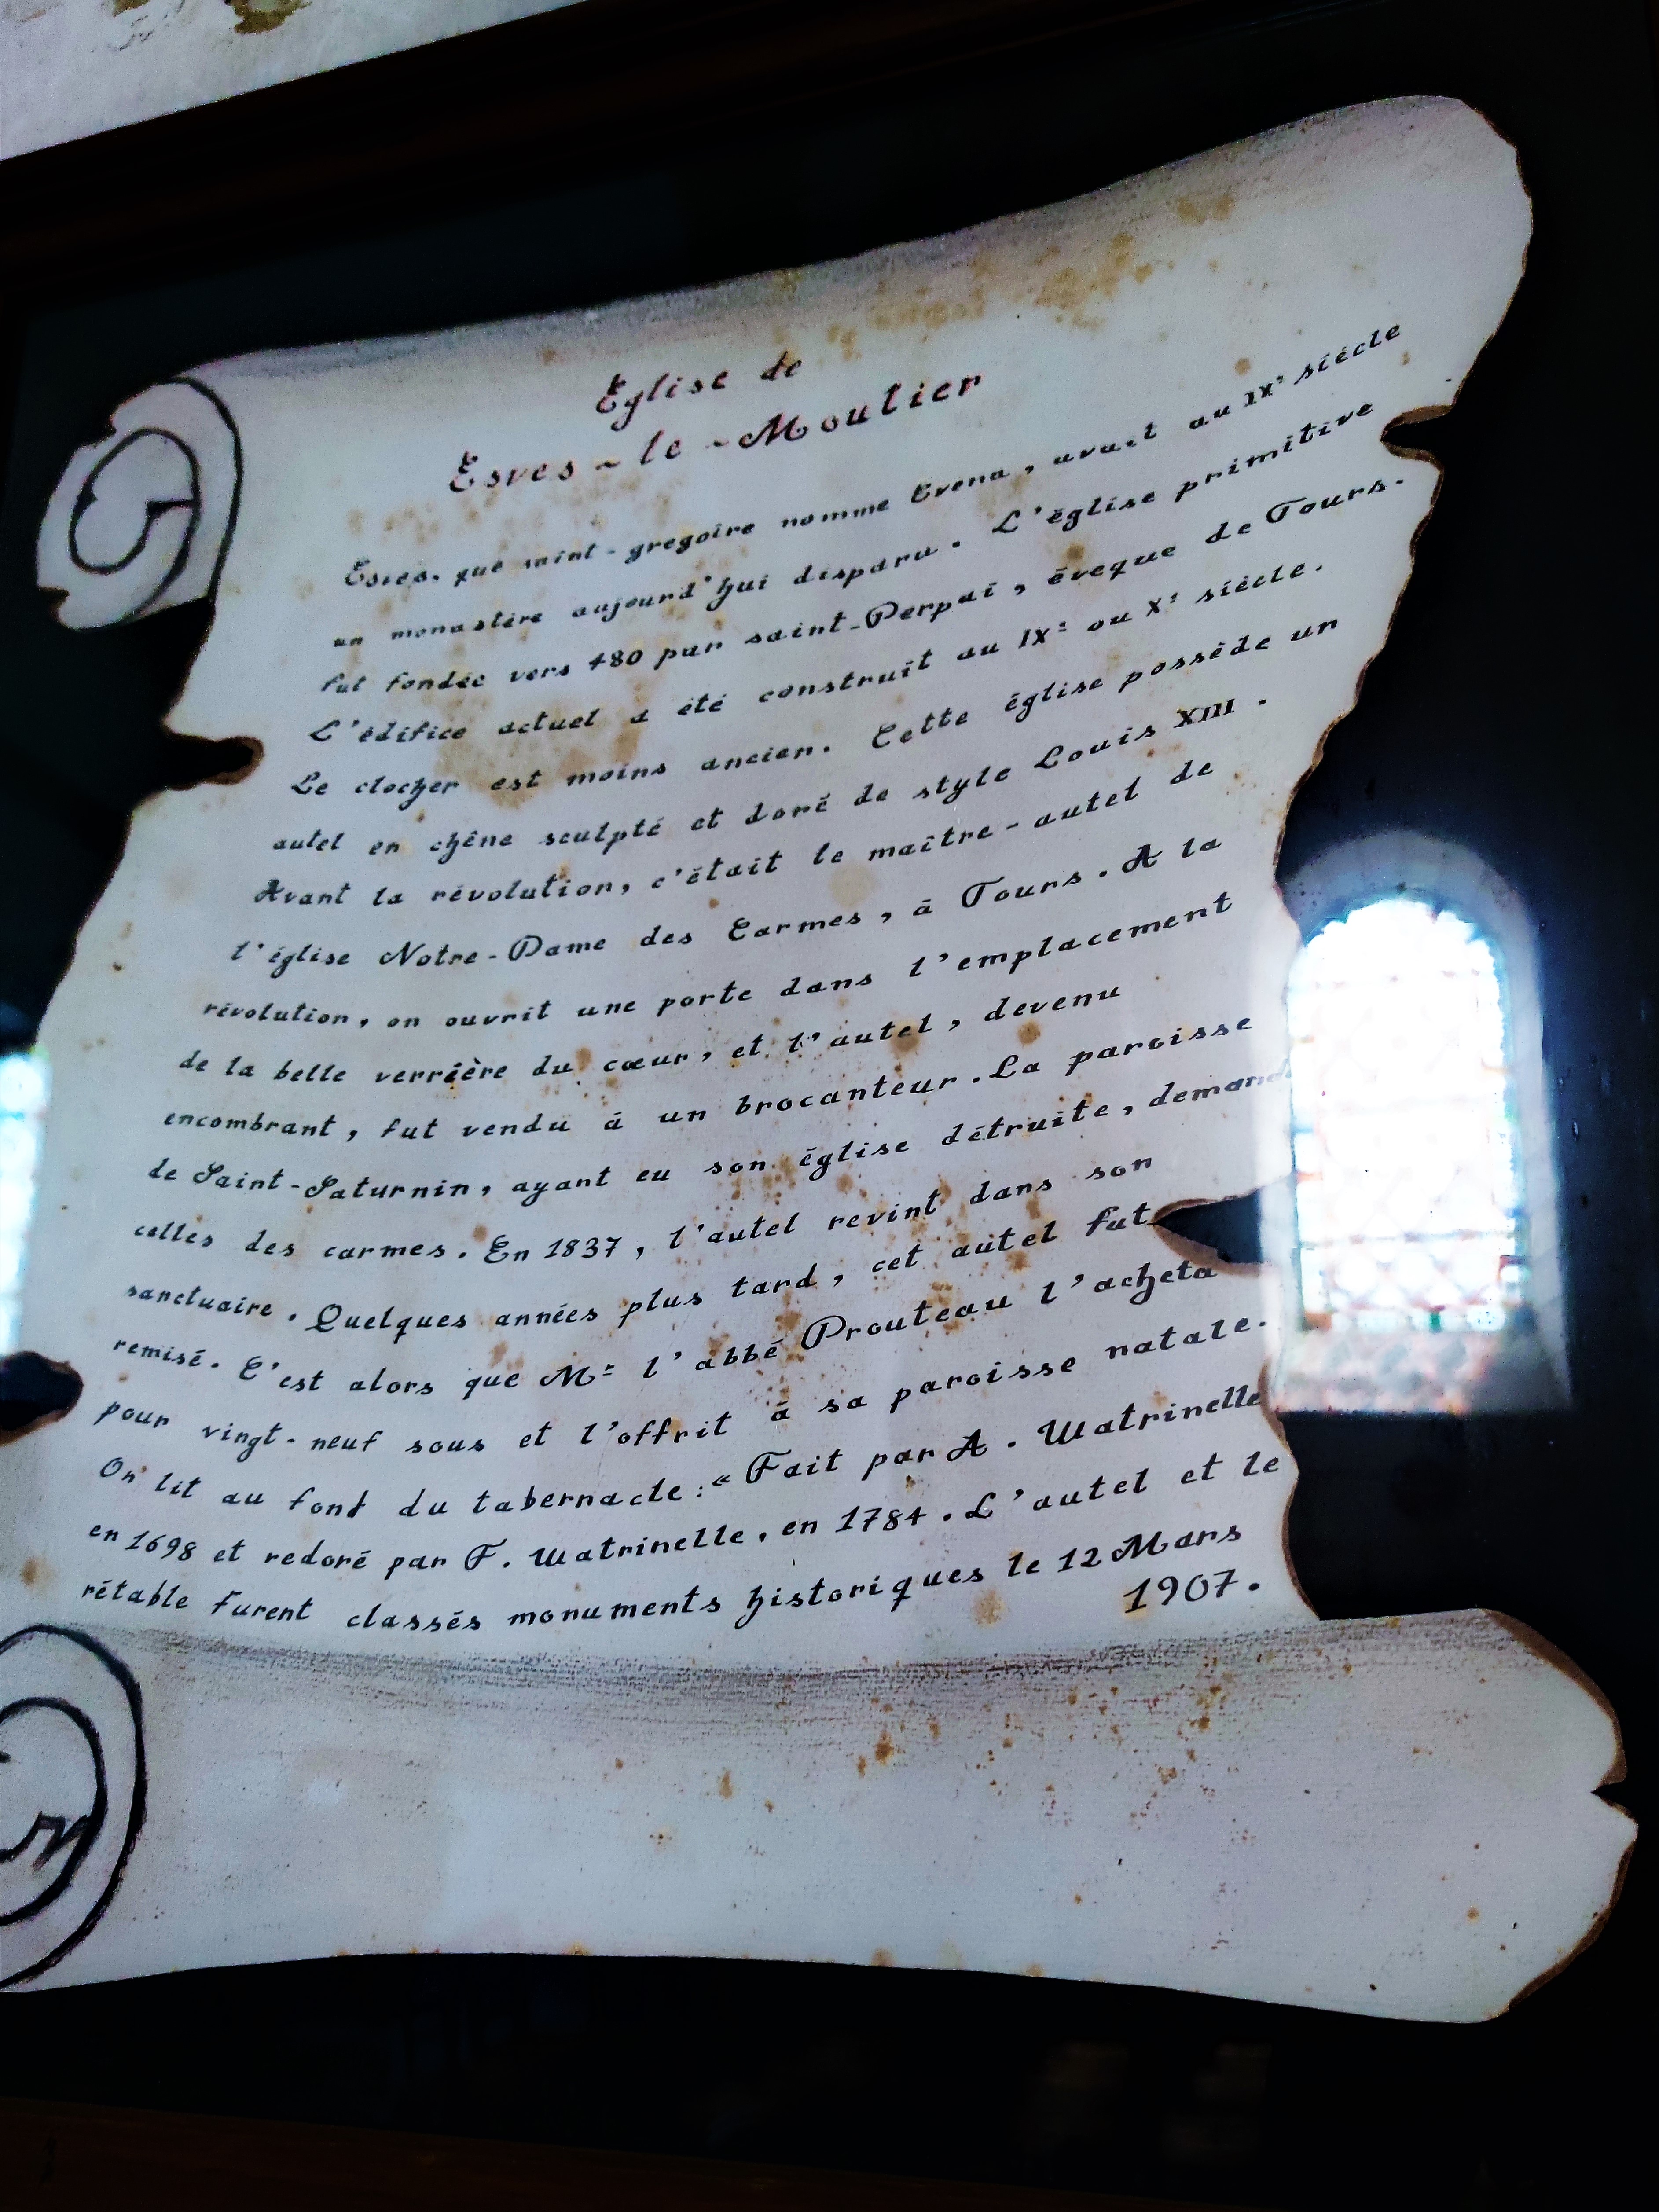 Eglise de
Esves-le-Moutier
Esves, que saint-gregoire nomme Evena, avait au IXe siècle
un monastère aujourd'hui disparu. L'église primitive
fut fondée vers 480 par saint-Perpai, éveque de Tours.
L'édifice actuel a été construit au IXe ou Xe siècle.
Le clocher est moins ancien. Cette église possède un
autel en chêne sculpté et doré de style Louis XIII.
Avant la révolution, c'était le maître-autel de
l'église Notre-Dame des Carmes, à Tours. A la
révolution, on ouvrit une porte dans l'emplacement
de la belle verrière du cœur, et l'autel, devenu
encombrant, fut vendu à un brocanteur. La paroisse
de Saint-Saturnin, ayant eu son église détruite, demand
celles des carmes. En 1837, l'autel revint dans son
sanctuaire. Quelques années plus tard, cet autel fut
remisé. C'est alors que Mr l'abbé Prouteau l'acheta
pour vingt-neuf sous et l'offrit à sa paroisse natale.
On lit au fond du tabernacle : « Fait par A. Watrinelle
en 1698 et redoré par F. Watrinelle, en 1784. L'autel et le
rétable furent classés monuments historiques le 12 Mars
1907.